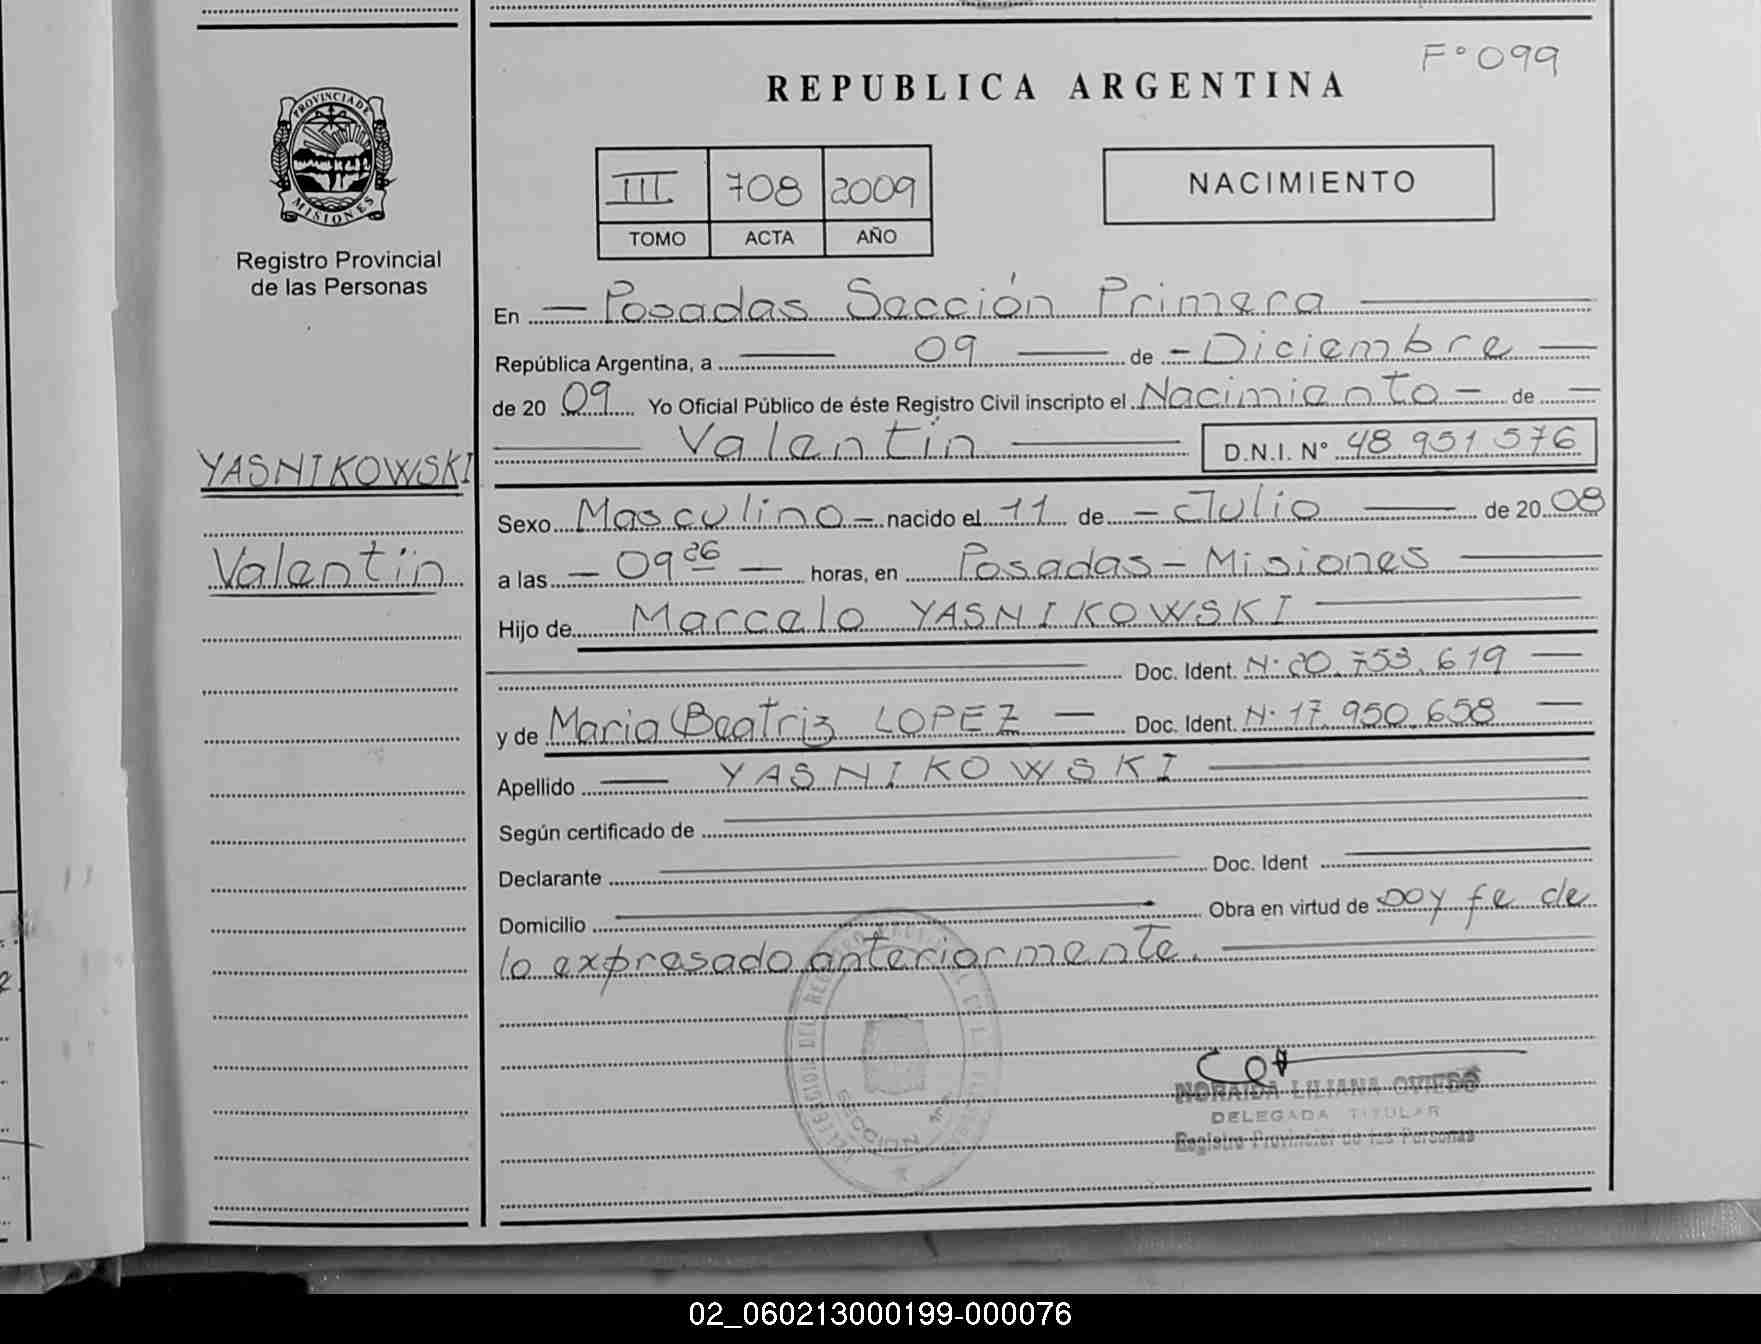 F° 099
REPUBLICA ARGENTINA
PROVINCIA DE
MISIONES
Registro Provincial
de las Personas
III 708 2009
TOMO ACTA AÑO
NACIMIENTO
En Posadas Sección Primera
República Argentina, a 09 de Diciembre
de 20 09 Yo Oficial Público de éste Registro Civil inscripto el Nacimiento de
Valentín D.N.I. N° 48 951 576
YASNIKOWSKI
Valentín
Sexo Masculino nacido el 11 de Julio de 20 08
a las 09 26 horas, en Posadas - Misiones
Hijo de Marcelo YASNIKOWSKI
Doc. Ident. N° 20.753.619
y de Maria Beatriz LOPEZ Doc. Ident. N° 17.950.658
Apellido YASNIKOWSKI
Según certificado de
Declarante Doc. Ident
Domicilio Obra en virtud de DOY fe de
lo expresado anteriormente.
NORAIDA LILIANA OVIEDO
DELEGADA TITULAR
Registro Provincial de las Personas
02_060213000199-000076